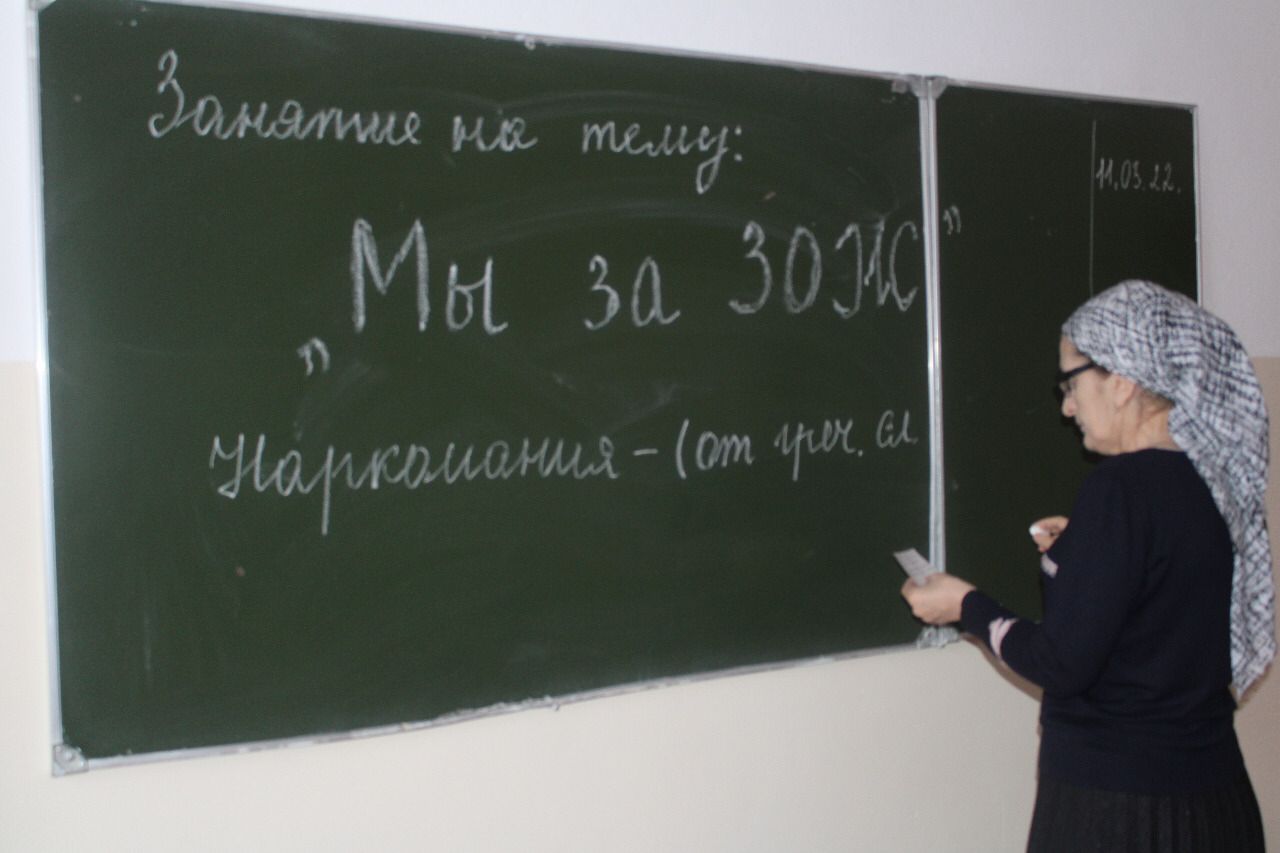 Занятие на тему:
„Мы за ЗОЖ"
Наркомания – (от греч. сл.
11.03.22.